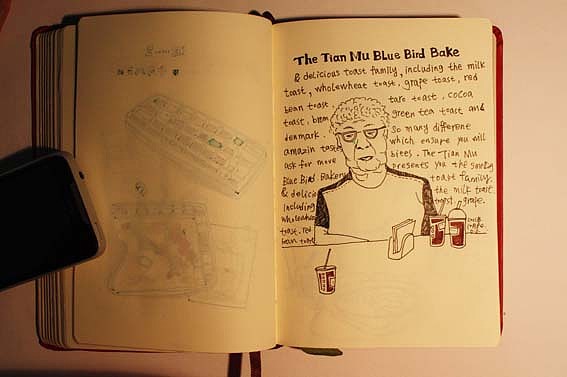 The Tian Mu Blue Bird Bake
& delicious toast family, including the milk
toast, wholewheat toast, grape toast, red
bean toast, taro toast, cocoa
toast, green tea toast and
denmark. so many different
amazin taste which ensure you will
ask for more bites. The Tian Mu
Blue Bird Bakery presents you the
& delicio toast family.
including the milk toast
wholewheat toast, grape.
toast. red
bean toast